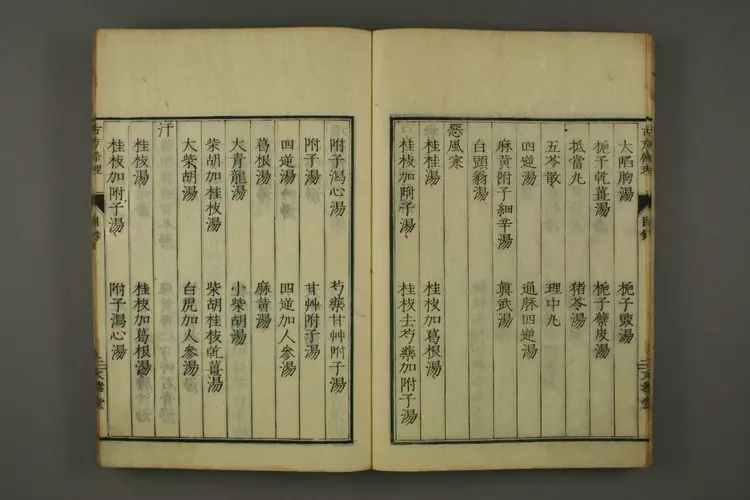 古方條理
目錄
大陷胸湯 梔子豉湯
梔子乾薑湯 梔子蘗皮湯
抵當丸 猪苓湯
五苓散 理中丸
四逆湯 通脉四逆湯
麻黄附子細辛湯 眞武湯
白頭翁湯
惡風寒
桂桂湯 桂枝加葛根湯
桂枝加附子湯 桂枝去芍藥加附子湯
附子瀉心湯 芍藥甘艸附子湯
附子湯 甘艸附子湯
四逆湯 四逆加人參湯
葛根湯 麻黄湯
大青龍湯 小柴胡湯
柴胡加桂枝湯 柴胡桂枝乾薑湯
大柴胡湯 白虎加人參湯
汗
桂枝湯 桂枝加葛根湯
桂枝加附子湯 附子瀉心湯
古方條理
目錄